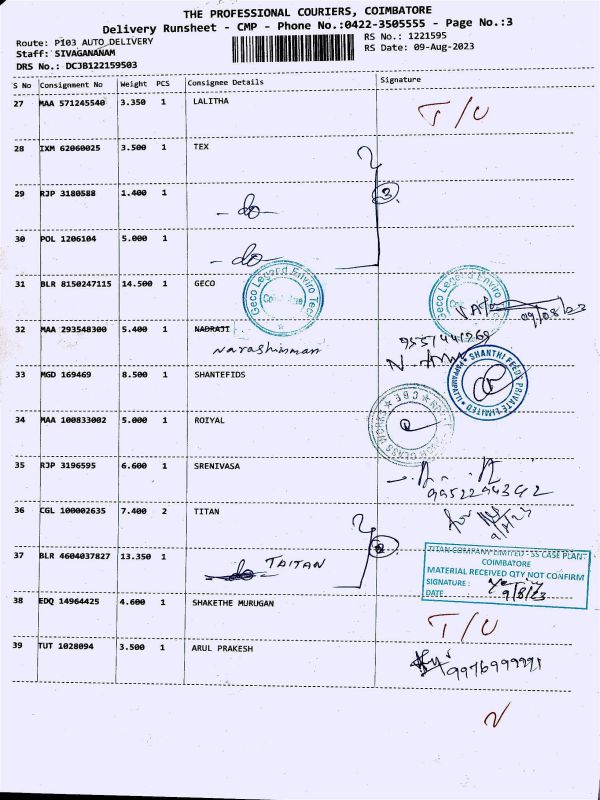 THE PROFESSIONAL COURIERS, COIMBATORE
Delivery Runsheet - CMP - Phone No.:0422-3505555 - Page No.:3
Route: P103 AUTO DELIVERY
RS No.: 1221595
Staff: SIVAGANANAM
RS Date: 09-Aug-2023
DRS No.: DCJB122159503
S No Consignment No Weight PCS Consignee Details Signature
27 MAA 571245540 3.350 1 LALITHA T/U
28 IXM 62060025 3.500 1 TEX
29 RJP 3180588 1.400 1 - do - 3
30 POL 1206104 5.000 1 - do -
31 BLR 8150247115 14.500 1 GECO
Geco Legend Enviro Tech
Coimbatore
Geco Legend Enviro
09/08/23
32 MAA 293548300 5.400 1 NADRAJI
Narashimman
33 MGD 169469 8.500 1 SHANTEFIDS
SHANTHI FEEDS PRIVATE LIMITED
34 MAA 100833002 5.000 1 ROIYAL
GLASS WORKS ★ CBE ★
35 RJP 3196595 6.600 1 SRENIVASA
9952294342
36 CGL 100002635 7.400 2 TITAN
for
9/8/23
37 BLR 4604037827 13.350 1 TAITAN
TITAN COMPANY LIMITED - SS CASE PLANT
COIMBATORE
MATERIAL RECEIVED QTY NOT CONFIRM
SIGNATURE :
DATE 9/8/23
38 EDQ 14964425 4.600 1 SHAKETHE MURUGAN T/U
39 TUT 1028094 3.500 1 ARUL PRAKESH